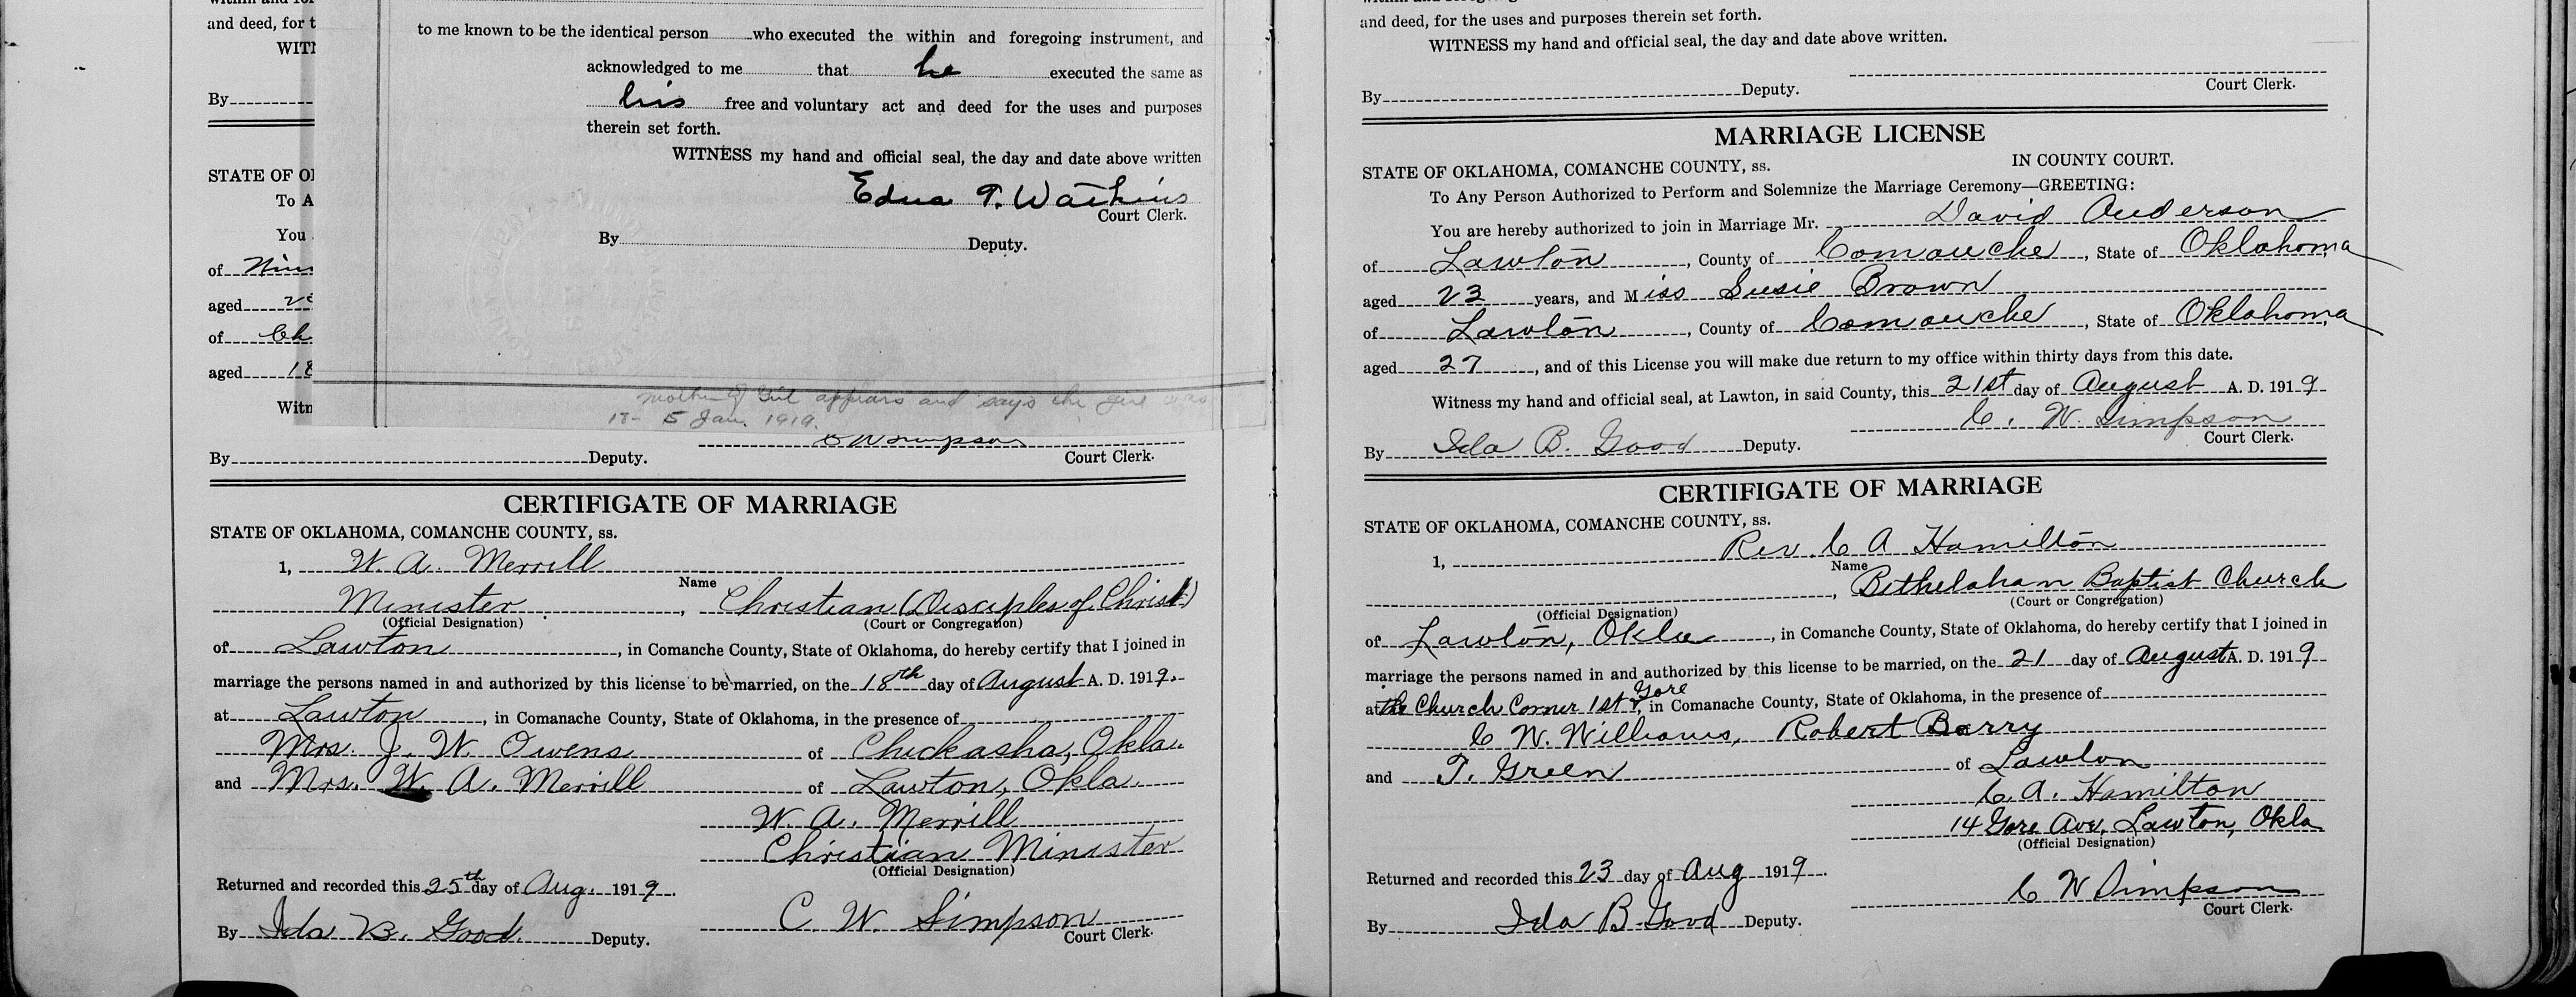 and deed, for t
WITI
By
STATE OF OI
To A
You
of
aged
of Ch
aged 18
Witn
to me known to be the identical person who executed the within and foregoing instrument, and
acknowledged to me that he executed the same as
his free and voluntary act and deed for the uses and purposes
therein set forth.
WITNESS my hand and official seal, the day and date above written
Edna T. Watkins
Court Clerk.
By Deputy.
mother of Girl appears and says the girl was
18- 5 Jan. 1919.
By Deputy. Court Clerk.
CERTIFICATE OF MARRIAGE
STATE OF OKLAHOMA, COMANCHE COUNTY, ss.
1, W. A. Merrill
Name
Minister, Christian (Disciples of Christ)
(Official Designation) (Court or Congregation)
of Lawton, in Comanche County, State of Oklahoma, do hereby certify that I joined in
marriage the persons named in and authorized by this license to be married, on the 18th day of August A. D. 1919.
at Lawton, in Comanache County, State of Oklahoma, in the presence of
Mrs. J. W. Owens of Chickasha, Okla.
and Mrs. W. A. Merrill of Lawton, Okla.
W. A. Merrill
Christian Minister
(Official Designation)
Returned and recorded this 25th day of Aug. 1919.
C. W. Simpson
By Ida B. Good Deputy. Court Clerk.
and deed, for the uses and purposes therein set forth.
WITNESS my hand and official seal, the day and date above written.
By Deputy. Court Clerk.
MARRIAGE LICENSE
STATE OF OKLAHOMA, COMANCHE COUNTY, ss. IN COUNTY COURT.
To Any Person Authorized to Perform and Solemnize the Marriage Ceremony—GREETING:
You are hereby authorized to join in Marriage Mr. David Anderson
of Lawton, County of Comanche, State of Oklahoma
aged 23 years, and Miss Susie Brown
of Lawton, County of Comanche, State of Oklahoma
aged 27, and of this License you will make due return to my office within thirty days from this date.
Witness my hand and official seal, at Lawton, in said County, this 21st day of August A. D. 1919
C. W. Simpson
By Ida B. Good Deputy. Court Clerk.
CERTIFIGATE OF MARRIAGE
STATE OF OKLAHOMA, COMANCHE COUNTY, ss.
1, Rev. C A Hamilton
Name
, Bethelaham Baptist Church
(Official Designation) (Court or Congregation)
of Lawton, Okla, in Comanche County, State of Oklahoma, do hereby certify that I joined in
marriage the persons named in and authorized by this license to be married, on the 21 day of August A. D. 1919
at the Church Corner 1st & Gore, in Comanache County, State of Oklahoma, in the presence of
C W. Williams, Robert Barry
and T. Green of Lawton
C. A. Hamilton
14 Gore Ave, Lawton, Okla
(Official Designation)
Returned and recorded this 23 day of Aug 1919.
C W Simpson
Court Clerk.
By Ida B Good Deputy.